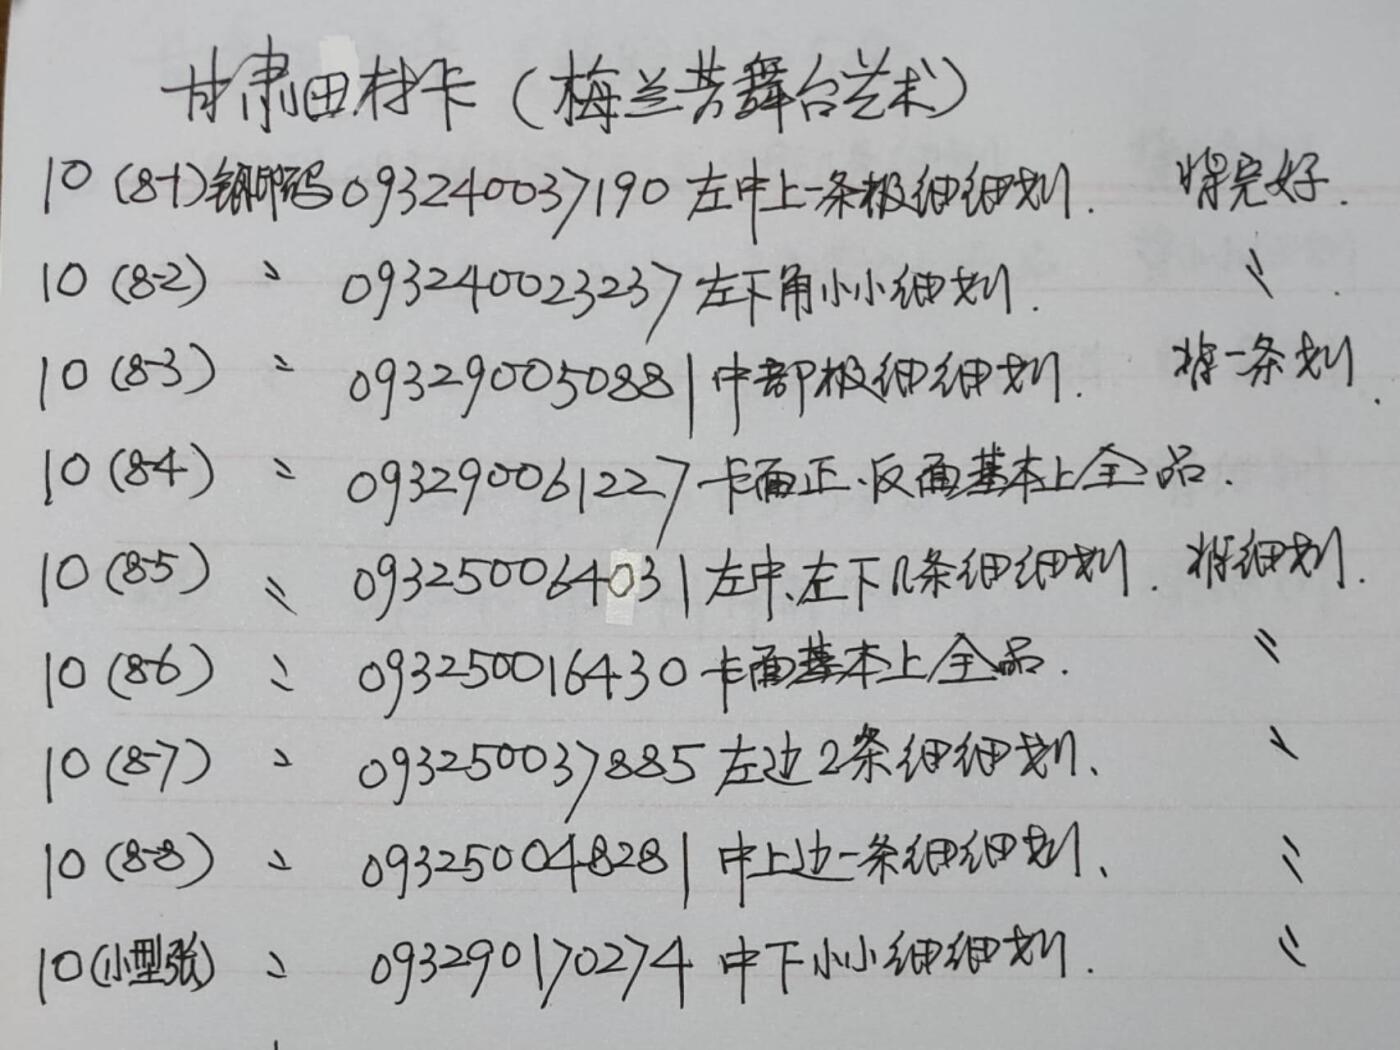 甘肃田村卡(梅兰芳舞台艺术)
10 (8-1) 钢印码 093240037190 左中上一条极细细划. 背完好.
10 (8-2) 〃 093240023237 左下角小小细划. 〃
10 (8-3) 〃 093290050881 中部极细细划. 背一条划.
10 (8-4) 〃 093290061227 卡面正、反面基本上全品.
10 (8-5) 〃 093250064031 左中、左下几条细细划. 背细划.
10 (8-6) 〃 093250016430 卡面基本上全品. 〃
10 (8-7) 〃 093250037885 左边2条细细划、 〃
10 (8-8) 〃 093250048281 中上边一条细细划、 〃
10 (小型张) 〃 093290170274 中下小小细细划. 〃